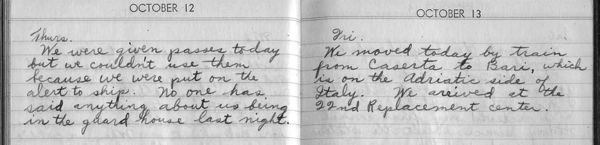 OCTOBER 12
Thurs.
We were given passes today
but we couldn't use them
because we were put on the
alert to ship. No one has
said anything about us being
in the guard house last night.
OCTOBER 13
Fri.
We moved today by train
from Caserta to Bari, which
is on the Adriatic side of
Italy. We areived at the
22nd Replacement center.